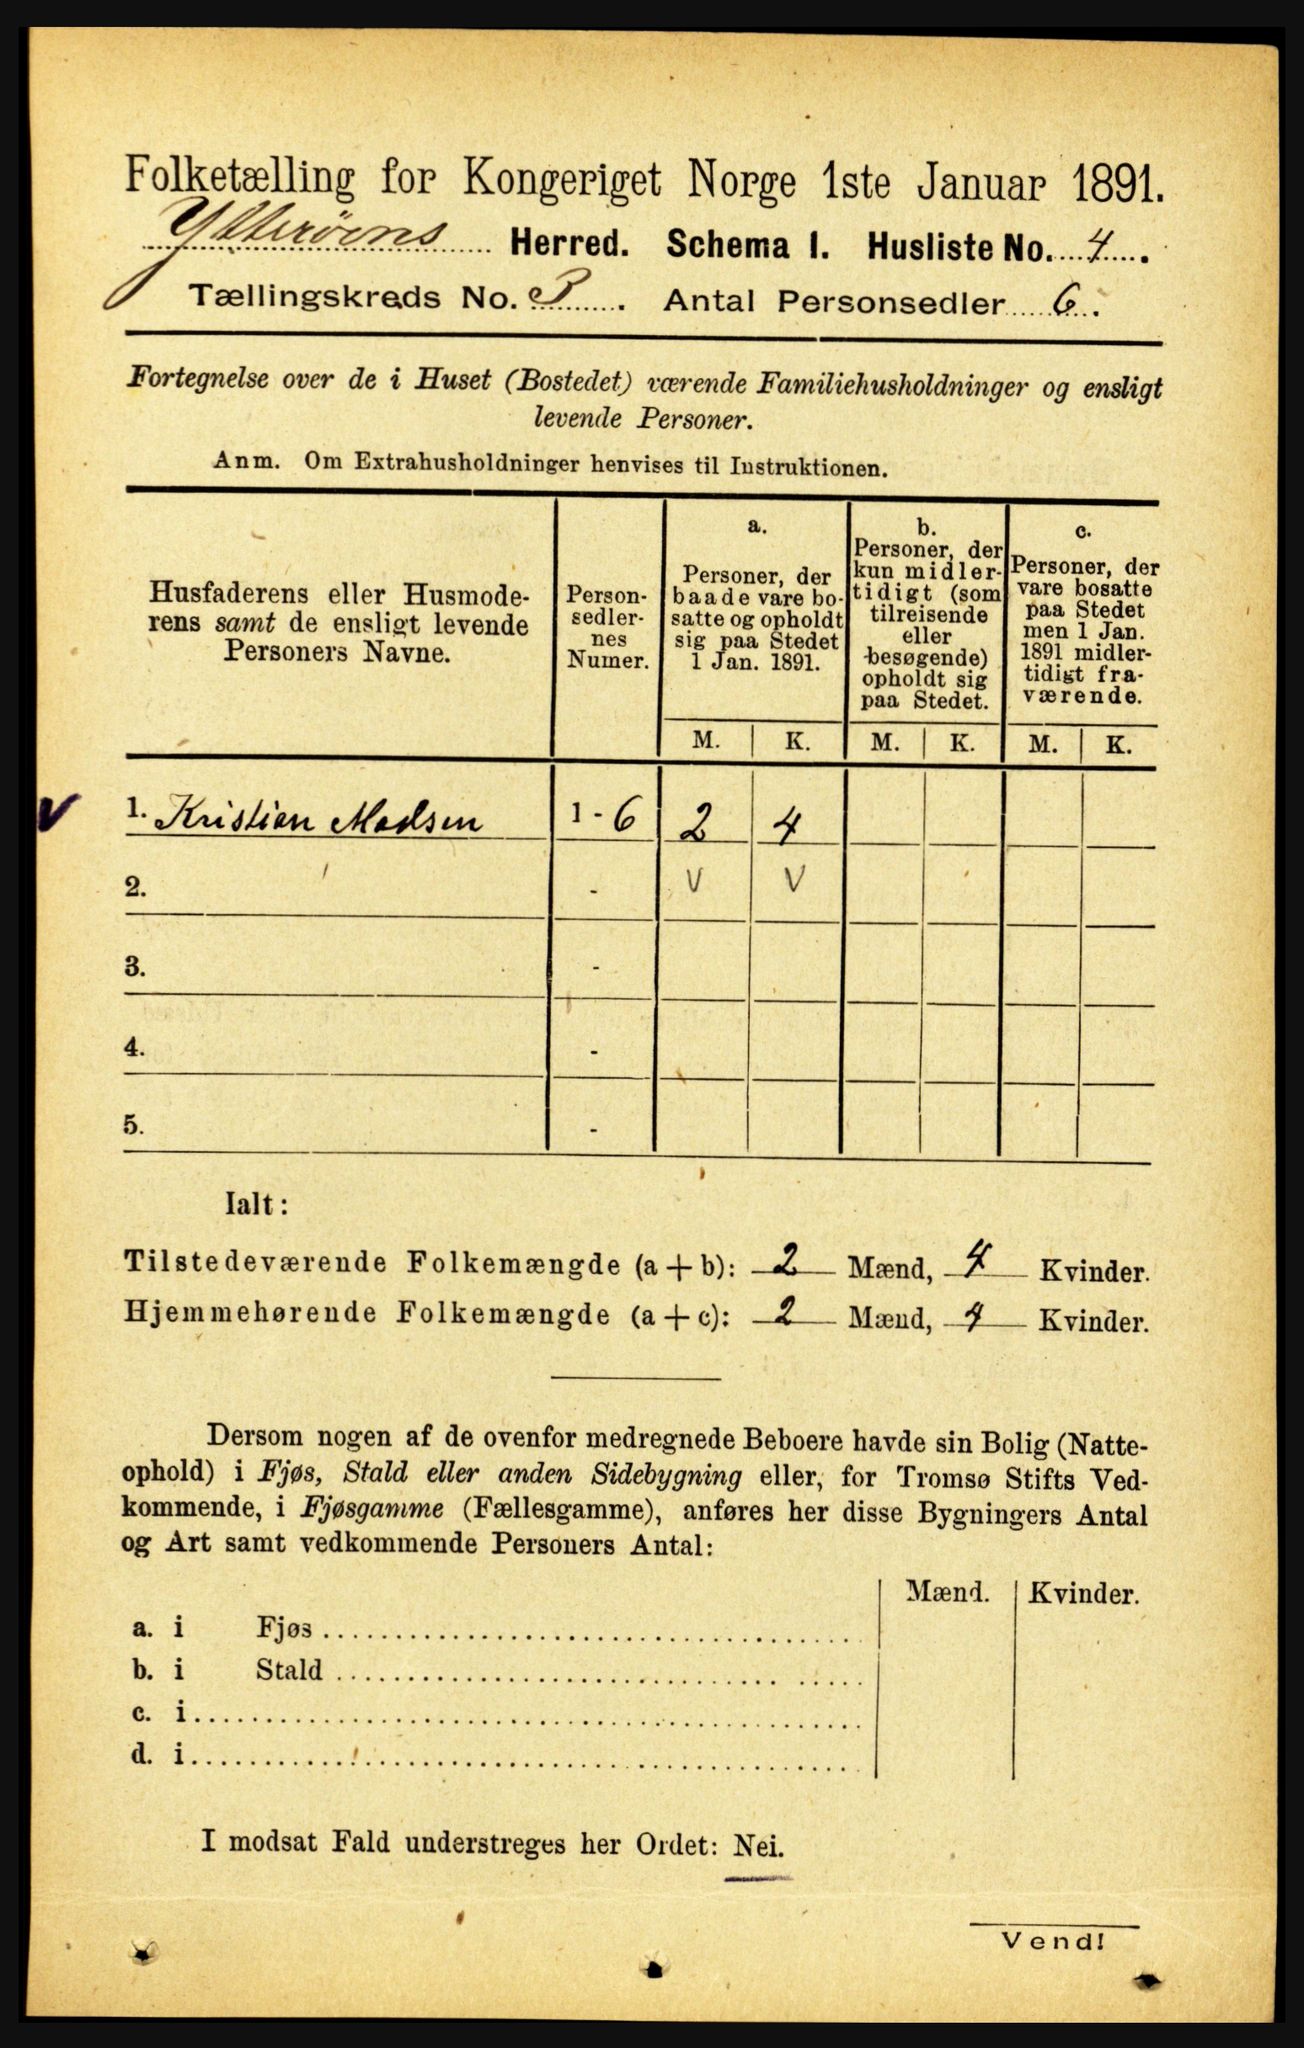 Folketælling for Kongeriget Norge 1ste Januar 1891.
Ytterøens Herred. Schema 1. Husliste No. 4.
Tællingskreds No. 3. Antal Personsedler 6.
Fortegnelse over de i Huset (Bostedet) værende Familiehusholdninger og ensligt
levende Personer.
Anm. Om Extrahusholdninger henvises til Instruktionen.
Husfaderens eller Husmode-
rens samt de ensligt levende
Personers Navne.
Person-
sedler-
nes
Numer.
a.
Personer, der
baade vare bo-
satte og opholdt
sig paa Stedet
1 Jan. 1891.
b.
Personer, der
kun midler-
tidigt (som
tilreisende
eller
besøgende)
opholdt sig
paa Stedet.
c.
Personer, der
vare bosatte
paa Stedet
men 1 Jan.
1891 midler-
tidigt fra-
værende.
M. K. M. K. M. K.
v 1. Kristian Madsen 1 - 6 2 4
2. - v v
3. -
4. -
5. -
Ialt:
Tilstedeværende Folkemængde (a + b): 2 Mænd, 4 Kvinder.
Hjemmehørende Folkemængde (a + c): 2 Mænd, 4 Kvinder.
Dersom nogen af de ovenfor medregnede Beboere havde sin Bolig (Natte-
ophold) i Fjøs, Stald eller anden Sidebygning eller, for Tromsø Stifts Ved-
kommende, i Fjøsgamme (Fællesgamme), anføres her disse Bygningers Antal
og Art samt vedkommende Personers Antal:
Mænd. Kvinder.
a. i Fjøs
b. i Stald
c. i
d. i
I modsat Fald understreges her Ordet: Nei.
Vend!